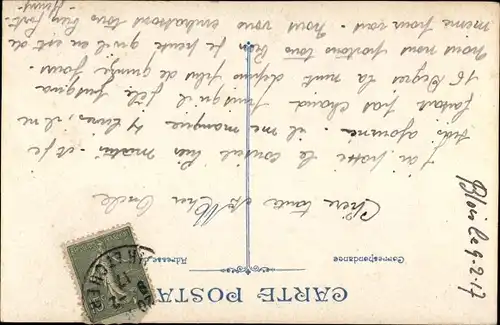 CARTE POSTALE
Correspondance
Adresse
Blois le 9-2-17
Chère tante et cher Oncle
J'ai passé le conseil hier matin et je
suis ajourné. il me manque 4 kilos, il ne
faisait pas chaud puisqu'il gèle jusqu'a
16 degrés la nuit depuis plus de quinze jours.
nous nous portons tous bien je pense qu'il en est de
même pour vous. Nous vous embrassons tous bien fort.